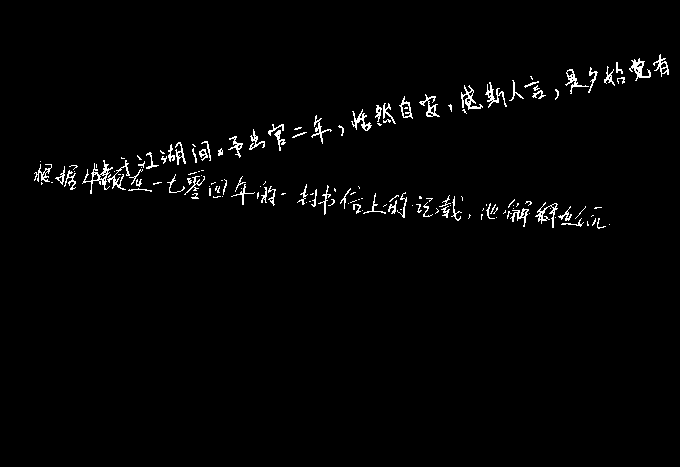 于江湖间。予出官二年，恬然自安，感斯人言，是夕始觉有
根据牛顿在一七零四年的一封书信上的记载，他解释